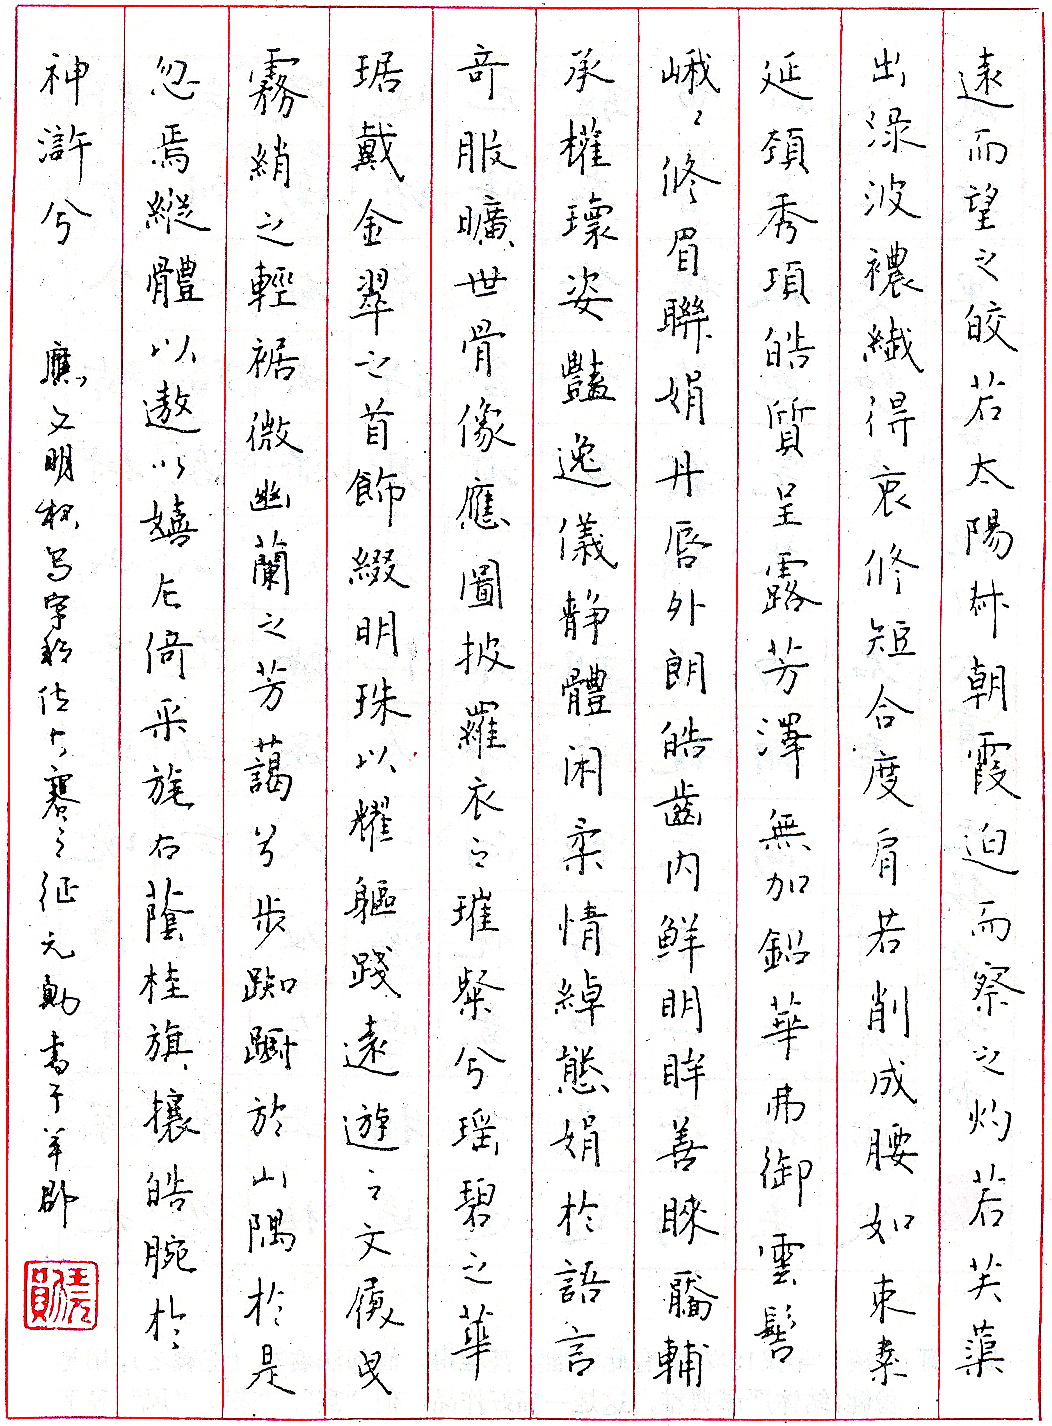 遠而望之皎若太陽升朝霞迫而察之灼若芙蕖
出渌波襛纖得衷修短合度肩若削成腰如束素
延頸秀項皓質呈露芳澤無加鉛華弗御雲髻
峨〻修眉聯娟丹唇外朗皓齒内鮮明眸善睞靨輔
承權瓌姿豔逸儀静體闲柔情綽態娟於語言
奇服曠世骨像應圖披羅衣之璀粲兮瑶碧之華
琚戴金翠之首飾綴明珠以耀軀踐遠遊之文履曳
霧綃之輕裾微幽蘭之芳藹兮步踟躕於山隅於是
忽焉縱體以遨以嬉左倚采旄右蔭桂旗攘皓腕於
神滸兮 應文明杯写字段位大賽之征元勳書于羊郡